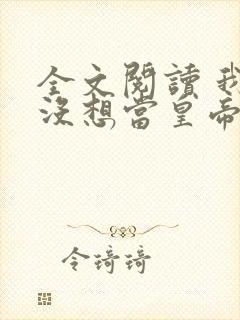 全文閱讀 我
沒想當皇帝
令琦琦